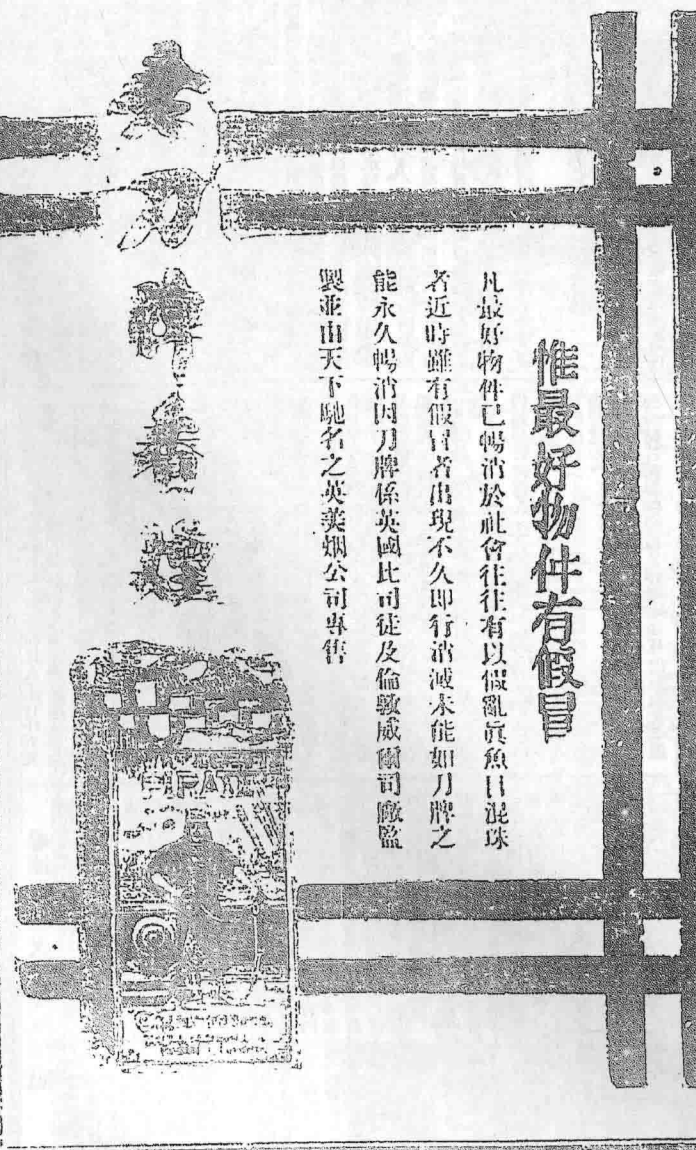 惟最好物件有假冒
凡最好物件已暢消於社會往往有以假亂眞魚目混珠
者近時雖有假冒者出現不久即行消滅未能如刀牌之
能永久暢消因刀牌係英國比司徒及倫敦威爾司廠監
製並由天下馳名之英美烟公司專售
老刀牌香煙
PIRATE